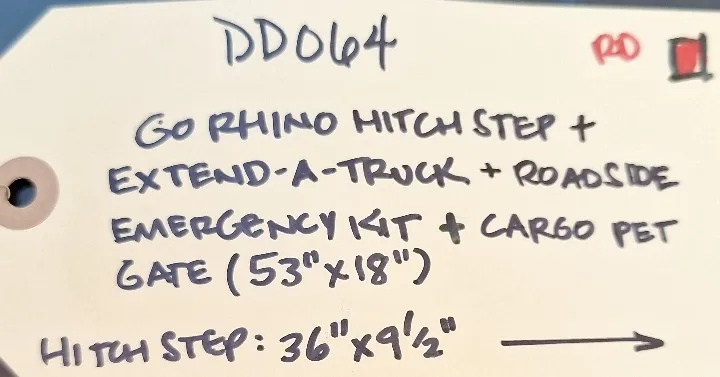 DD064 RD
GO RHINO HITCH STEP +
EXTEND-A-TRUCK + ROADSIDE
EMERGENCY KIT + CARGO PET
GATE (53"x18")
HITCH STEP: 36"x9 1/2" →